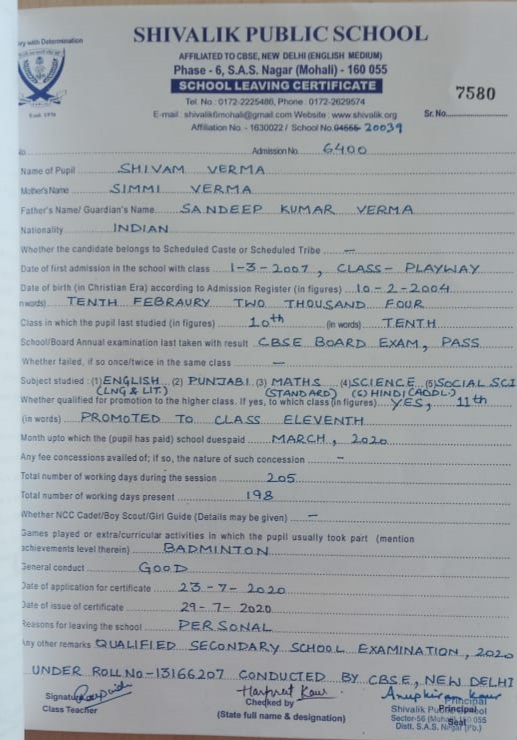 ry with Determination
SHIVALIK PUBLIC SCHOOL
AFFILIATED TO CBSE, NEW DELHI (ENGLISH MEDIUM)
Phase - 6, S.A.S. Nagar (Mohali) - 160 055
SCHOOL LEAVING CERTIFICATE
7580
Tel. No.: 0172-2225486, Phone : 0172-2629574
E-mail : shivalik6mohali@gmail.com Website : www.shivalik.org
Sr. No.
Estd. 1970
Affiliation No. - 1630022 / School No. 04655 20039
No
Admission No. 6400
Name of Pupil SHIVAM VERMA
Mother's Name SIMMI VERMA
Father's Name/ Guardian's Name SANDEEP KUMAR VERMA
Nationality INDIAN
Whether the candidate belongs to Scheduled Caste or Scheduled Tribe —
Date of first admission in the school with class 1-3-2007, CLASS- PLAYWAY
Date of birth (in Christian Era) according to Admission Register (in figures) 10-2-2004
n words) TENTH FEBRAURY TWO THOUSAND FOUR
Class in which the pupil last studied (in figures) 10th (in words) TENTH
School/Board Annual examination last taken with result CBSE BOARD EXAM, PASS
Whether failed, if so once/twice in the same class —
Subject studied : (1) ENGLISH (2) PUNJABI (3) MATHS (4) SCIENCE (5) SOCIAL SCI
(LNG & LIT.) (STANDARD) (6) HINDI (ADDL.)
Whether qualified for promotion to the higher class. If yes, to which class (in figures) YES, 11th
(in words) PROMOTED TO CLASS ELEVENTH
Month upto which the (pupil has paid) school dues paid MARCH, 2020
Any fee concessions availed of; if so, the nature of such concession —
Total number of working days during the session 205
Total number of working days present 198
Whether NCC Cadet/Boy Scout/Girl Guide (Details may be given) —
Games played or extra/curricular activities in which the pupil usually took part (mention
achievements level therein) BADMINTON
General conduct GOOD
Date of application for certificate 23-7-2020
Date of issue of certificate 29-7-2020
Reasons for leaving the school PERSONAL
Any other remarks QUALIFIED SECONDARY SCHOOL EXAMINATION, 2020
UNDER ROLL NO-13166207 CONDUCTED BY CBSE, NEW DELHI
Harpreet Kaur Anupkiran Kaur
Signature
Class Teacher
Checked by
(State full name & designation)
Principal
Shivalik Public School
Principal
Seal
Sector-56 (Mohali) 160 055
Distt. S.A.S. Nagar (Pb.)